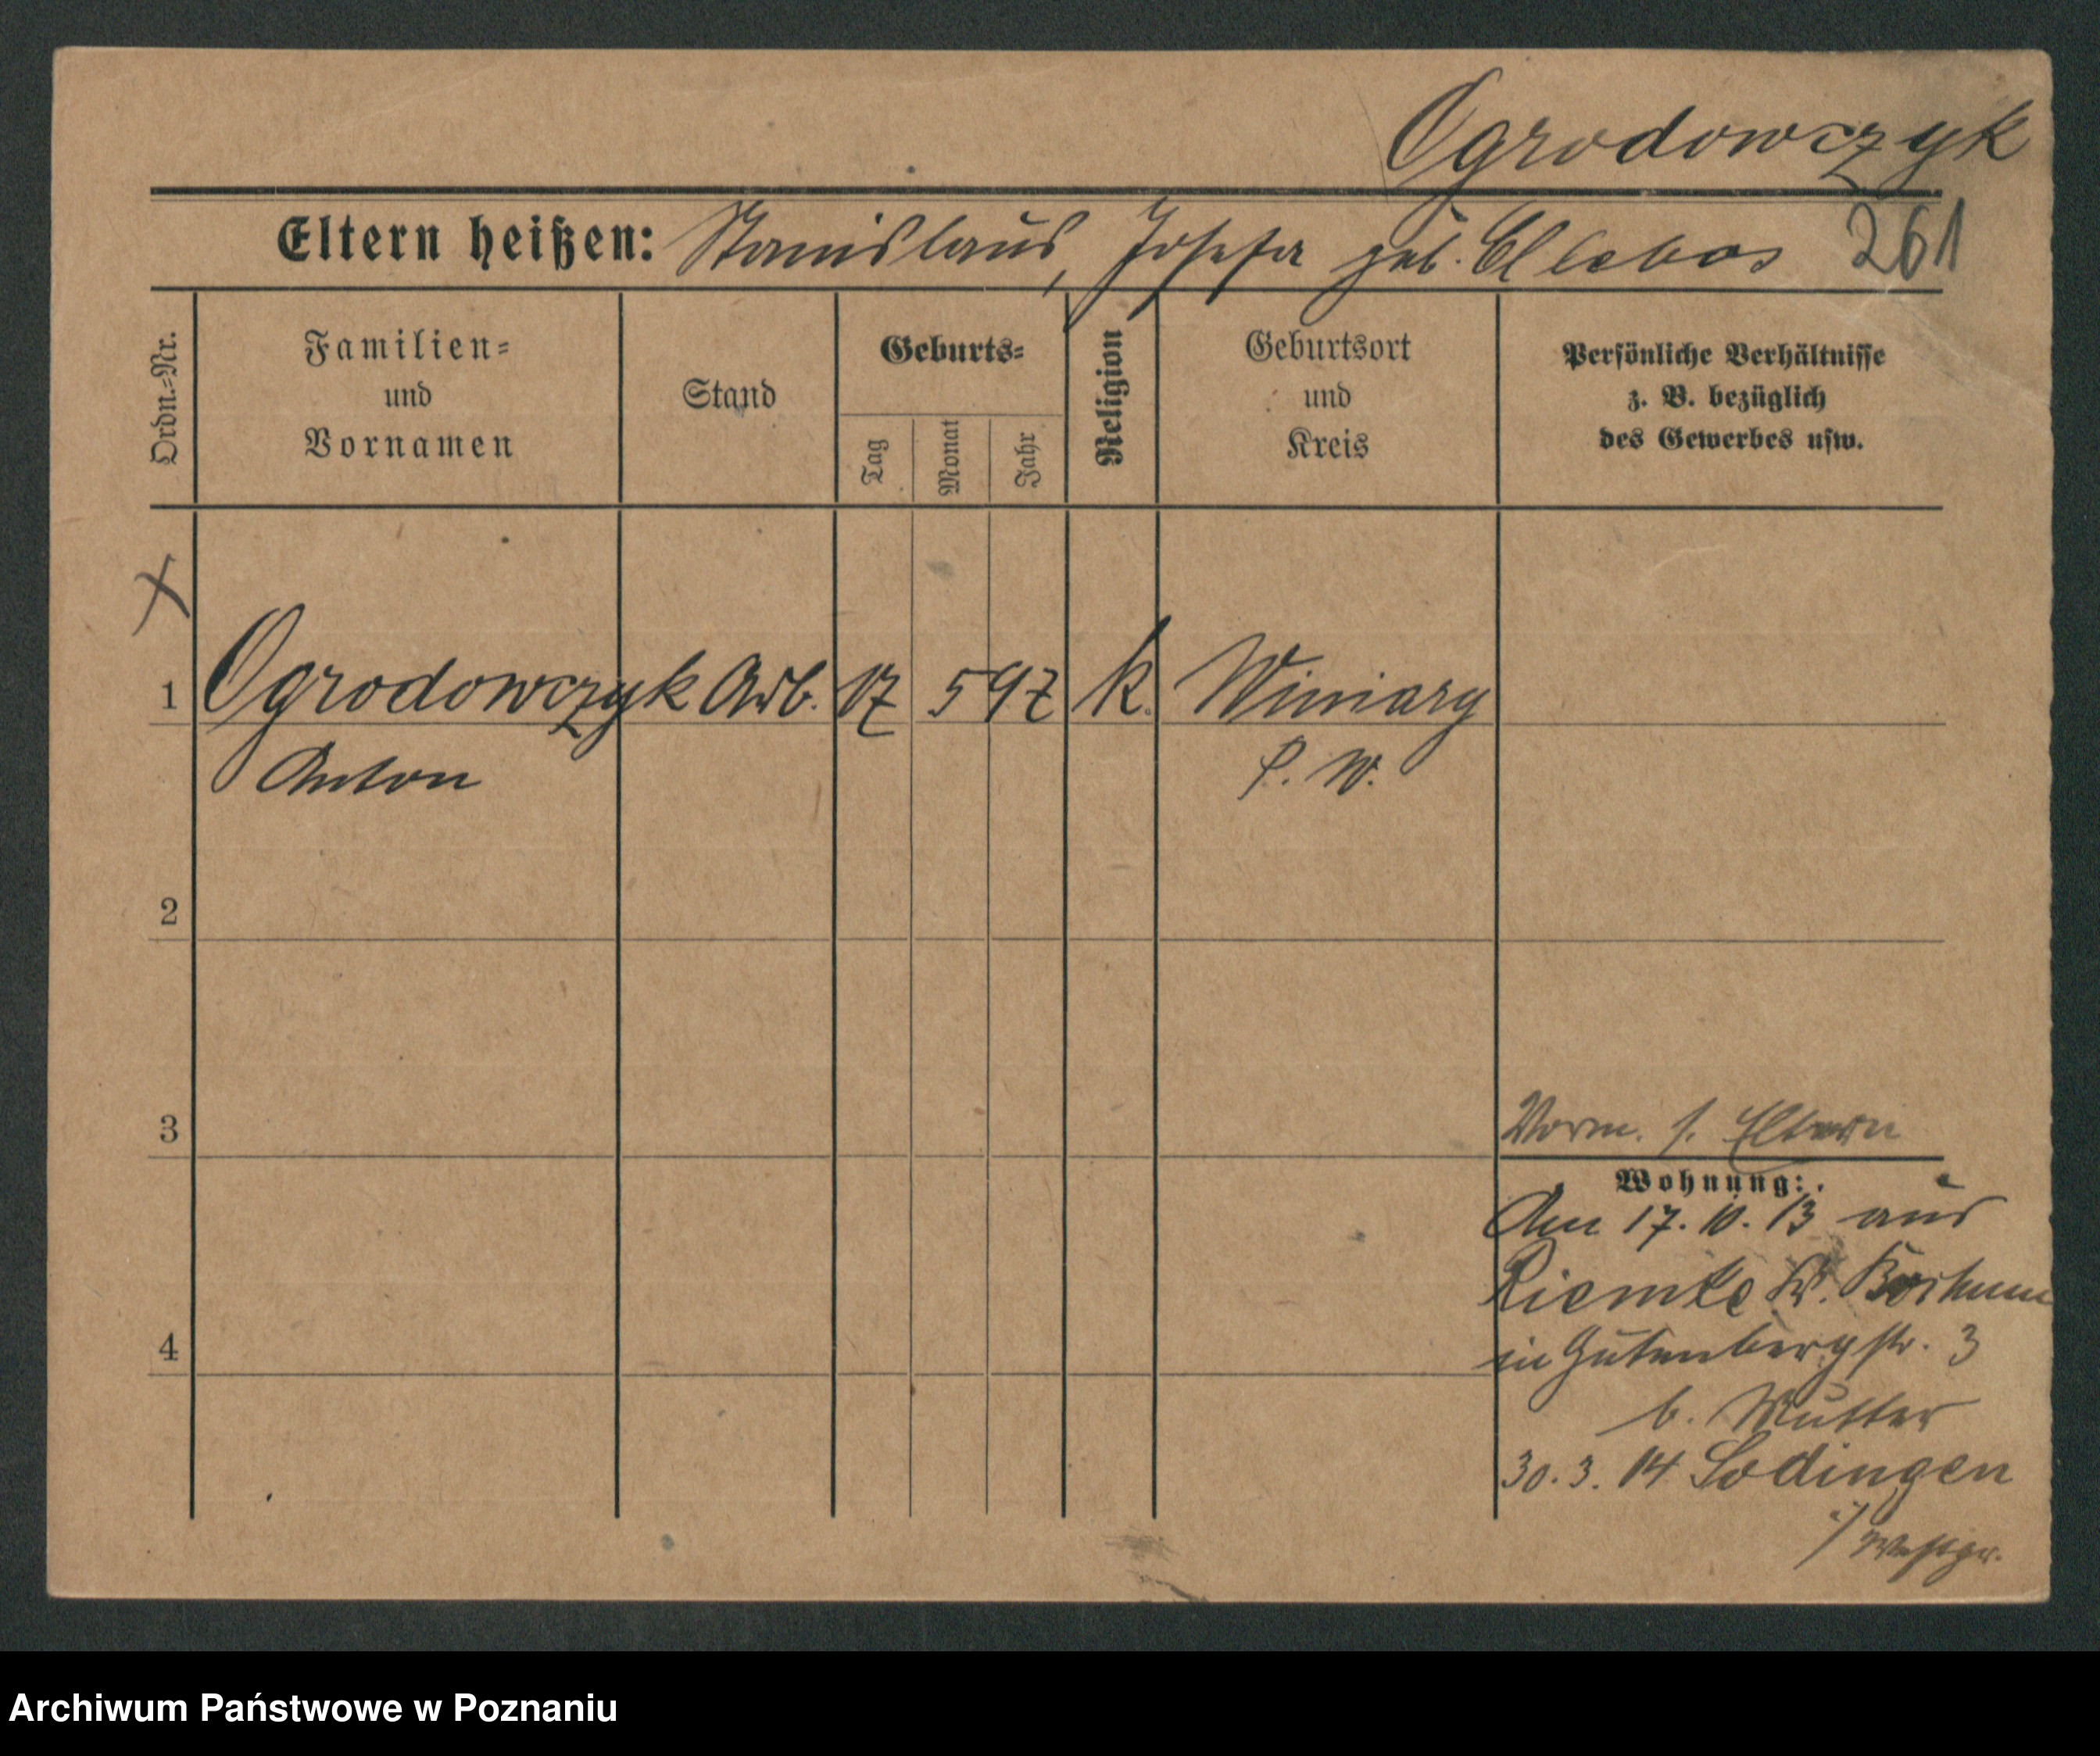 Ogrodowczyk
Eltern heißen: Stanislaus, Josefa geb. 261
Ordn.=Nr.
Familien=
und
Vornamen
Stand
Geburts=
Tag
Monat
Jahr
Religion
Geburtsort
und
Kreis
Persönliche Verhältnisse
z. B. bezüglich
des Gewerbes usw.
X
1 Ogrodowczyk Arb. 17 5 97 k. Winiary
Anton P. W.
2
3
Vorm. s. Eltern
Wohnung:
Am 17. 10. 13 aus
Riemke Kr. Bochum
in Gutenbergstr. 3
4
b. Mutter
30. 3. 14 Sodingen
i/
Archiwum Państwowe w Poznaniu